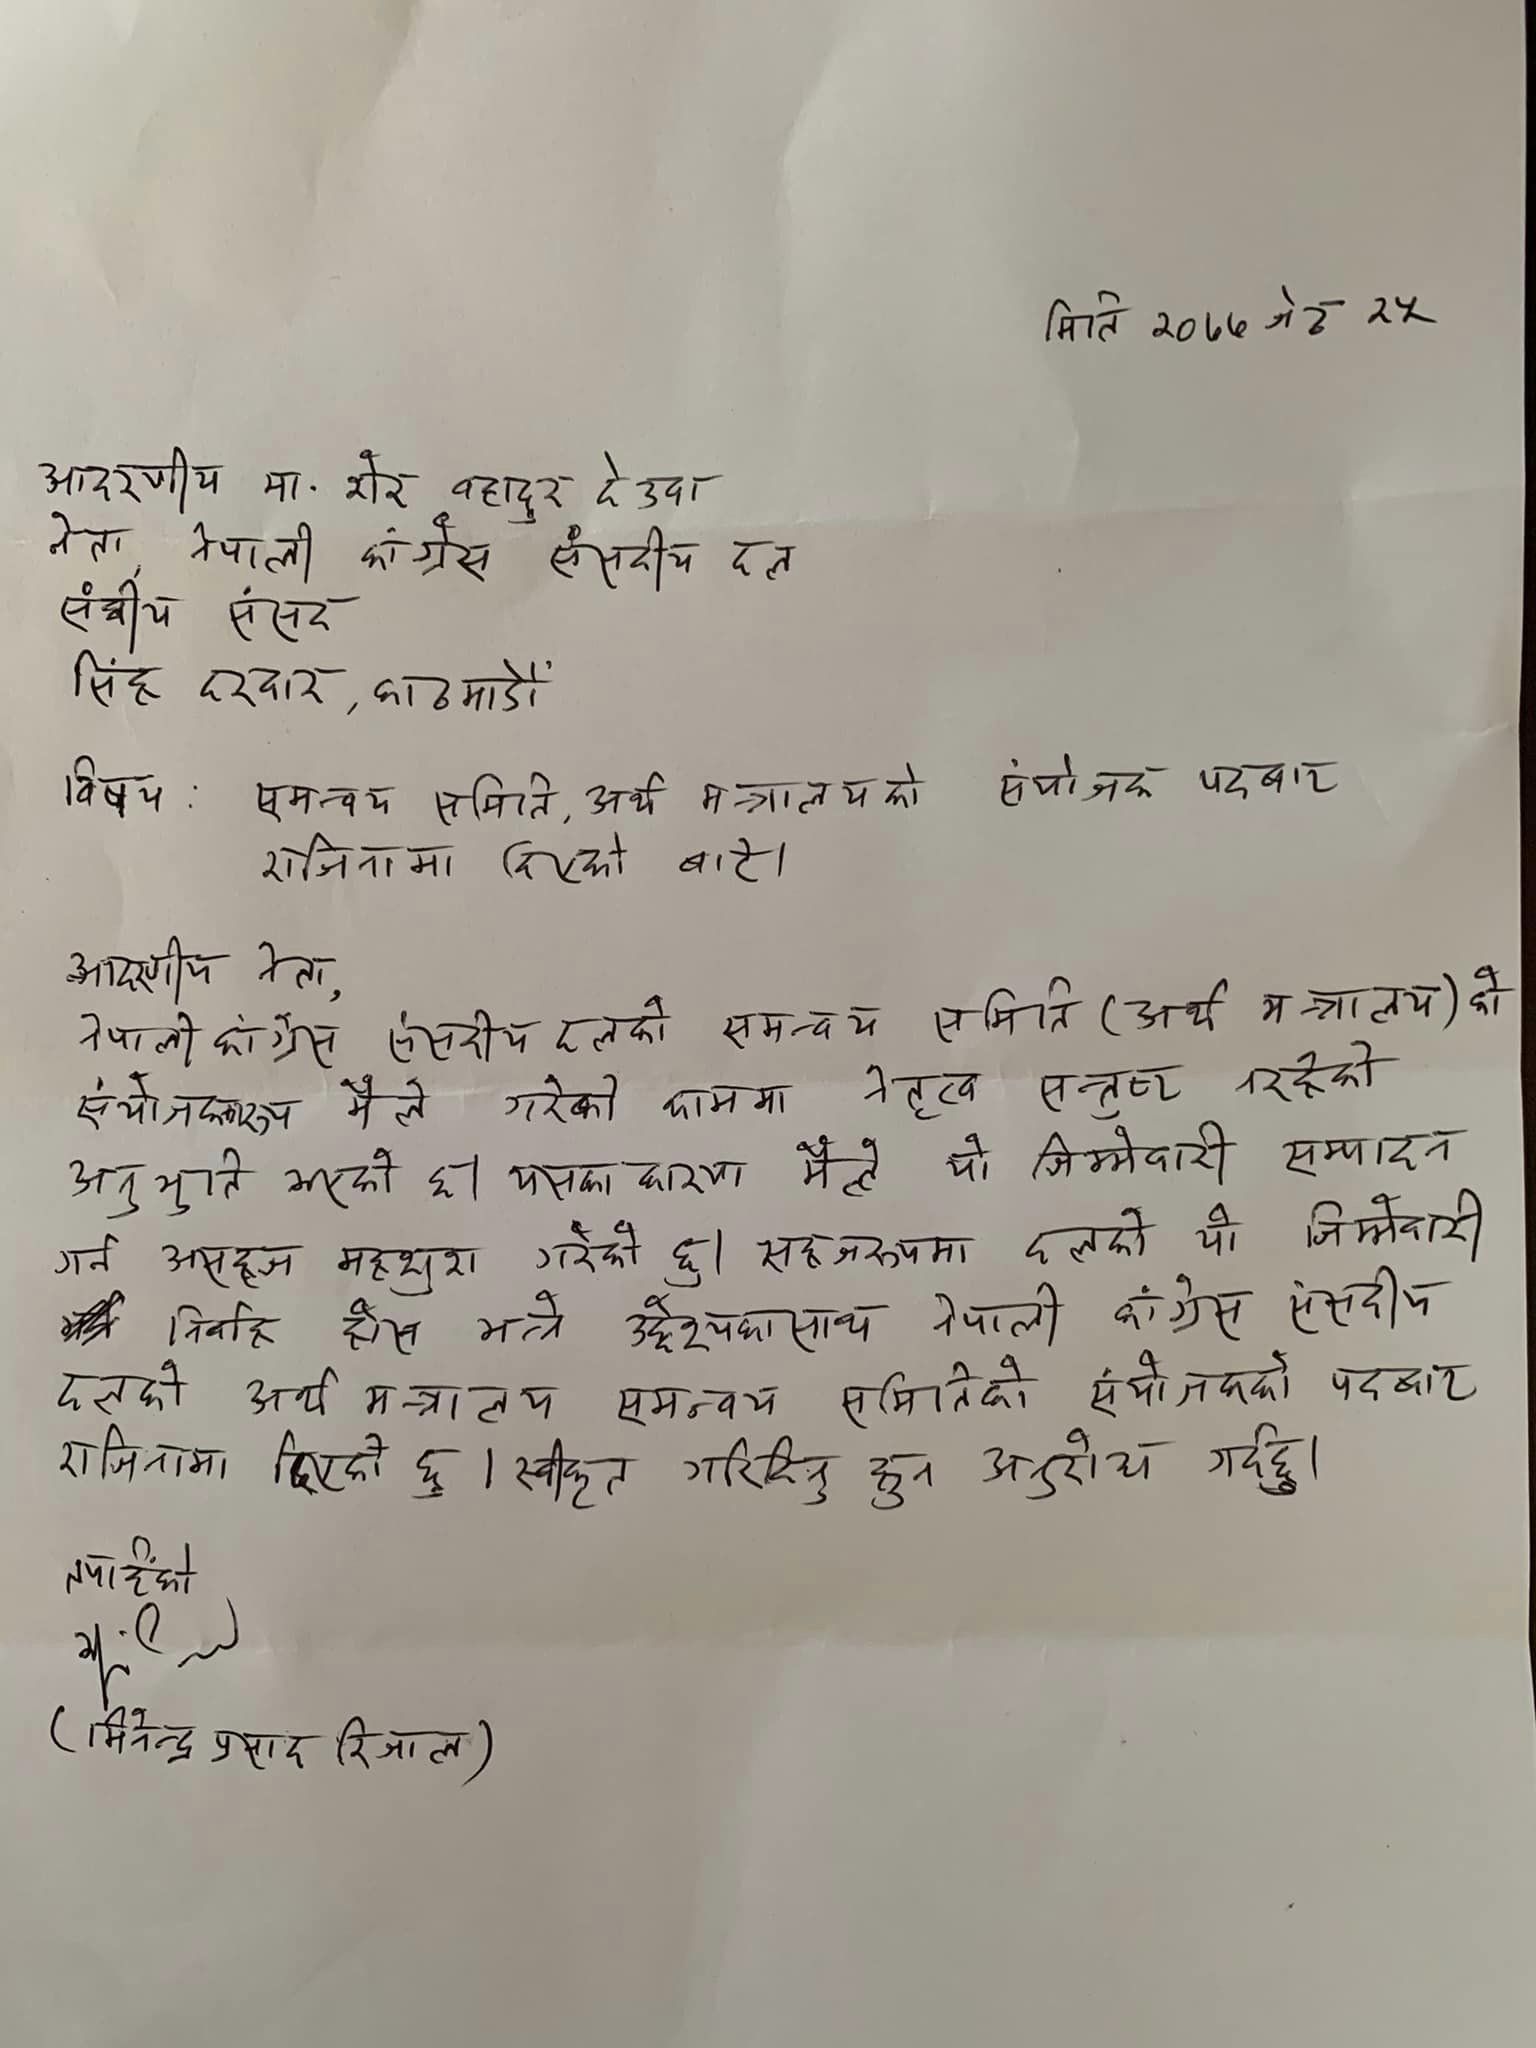 मिति २०७७ जेठ २५
आदरणीय मा. शेर वहादुर देउवा
नेता, नेपाली कांग्रेस संसदीय दल
संघीय संसद
सिंह दरवार, काठमाडौं
विषय: समन्वय समिति, अर्थ मन्त्रालयको संयोजक पदबाट
राजिनामा दिएको बारे।
आदरणीय नेता,
नेपाली कांग्रेस संसदीय दलको समन्वय समिति (अर्थ मन्त्रालय) को
संयोजकका रुप मैले गरेको काममा नेतृत्व सन्तुष्ट नरहेको
अनुभुति भएको छ। यसका कारण मैले यो जिम्मेदारी सम्पादन
गर्न असहज महशुश गरेको छु। सहजरुपमा दलको यो जिम्मेदारी
निर्वाह होस भन्ने उद्देश्यका साथ नेपाली कांग्रेस संसदीय
दलको अर्थ मन्त्रालय समन्वय समितिको संयोजकको पदबाट
राजिनामा दिएको छु। स्वीकृत गरिदिनु हुन अनुरोध गर्दछु।
तपाईंको
(मिनेन्द्र प्रसाद रिजाल)